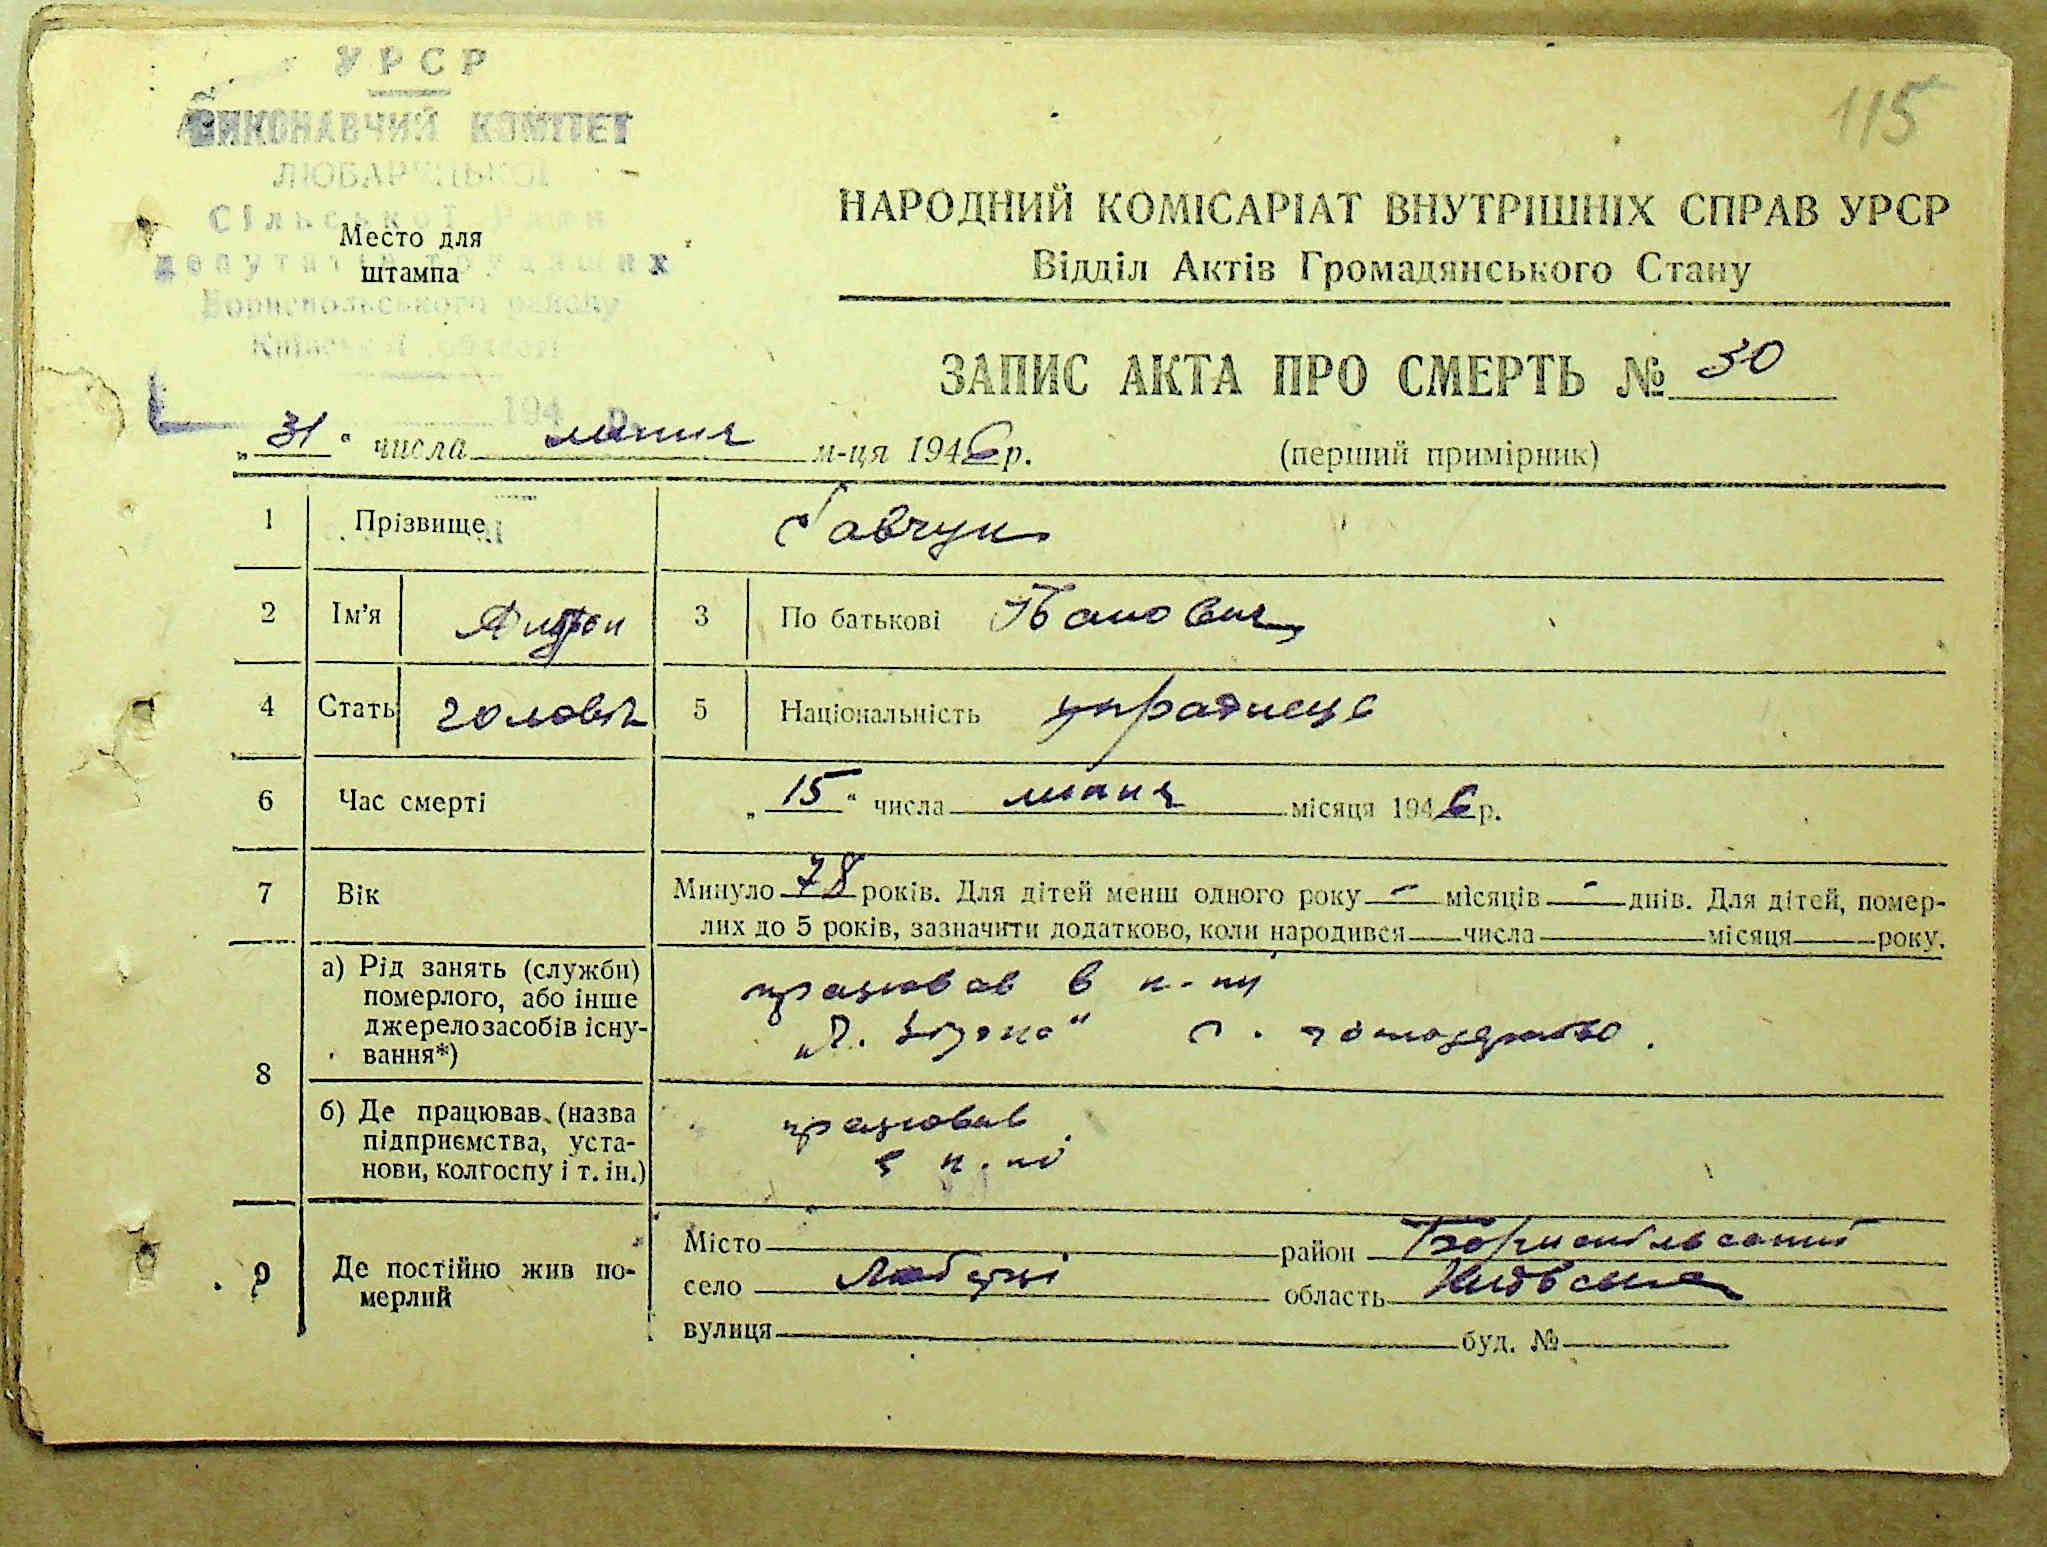 115
УРСР
ВИКОНАВЧИЙ КОМІТЕТ
ЛЮБАРЕЦЬКОЇ
Сільської Ради
депутатів трудящих
Бориспольського району
Київської області
194 р.
Место для
штампа
НАРОДНИЙ КОМІСАРІАТ ВНУТРІШНІХ СПРАВ УРСР
Відділ Актів Громадянського Стану
ЗАПИС АКТА ПРО СМЕРТЬ № 30
„31" числа липня м-ця 1946 р.
(перший примірник)
1 Прізвище Савчук
2 Ім'я 3 По батькові
4 Стать чоловік 5 Національність
6 Час смерті „15" числа липня місяця 1946 р.
7 Вік Минуло 78 років. Для дітей менш одного року - місяців - днів. Для дітей, помер-
лих до 5 років, зазначити додатково, коли народився числа місяця року.
8 а) Рід занять (служби)
померлого, або інше
джерело засобів існу-
вання*)
працював в к-пі
с. господарство.
б) Де працював (назва
підприємства, уста-
нови, колгоспу і т. ін.)
працював
в к-пі
9 Де постійно жив по-
мерлий
Місто район Бориспільський
село Любарці область Київська
вулиця буд. №